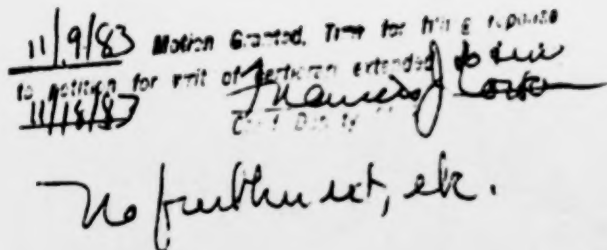 11/9/83 Motion Granted. Time for filing response
to petition for writ of certiorari extended to &
11/18/83 Francis J. Lorson
Chief Deputy
No further ext, etc.